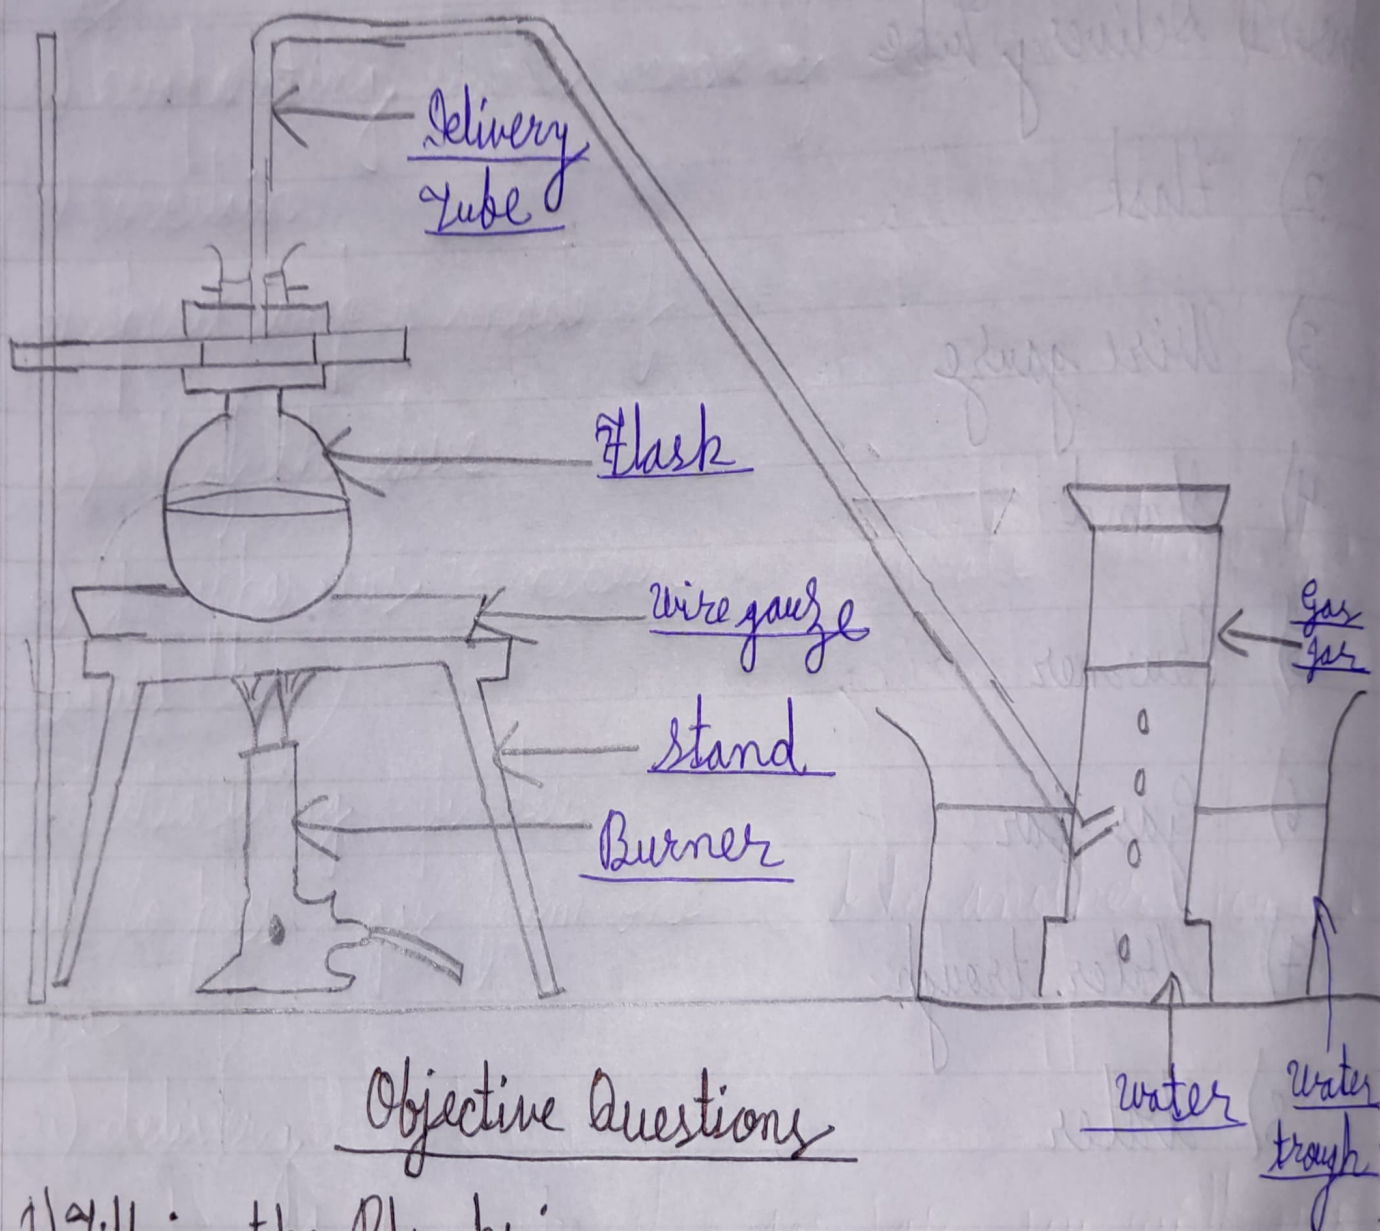 Delivery
Tube
Flask
Wire gauze
Stand
Burner
Gas
jar
Water
Water
trough
Objective Questions